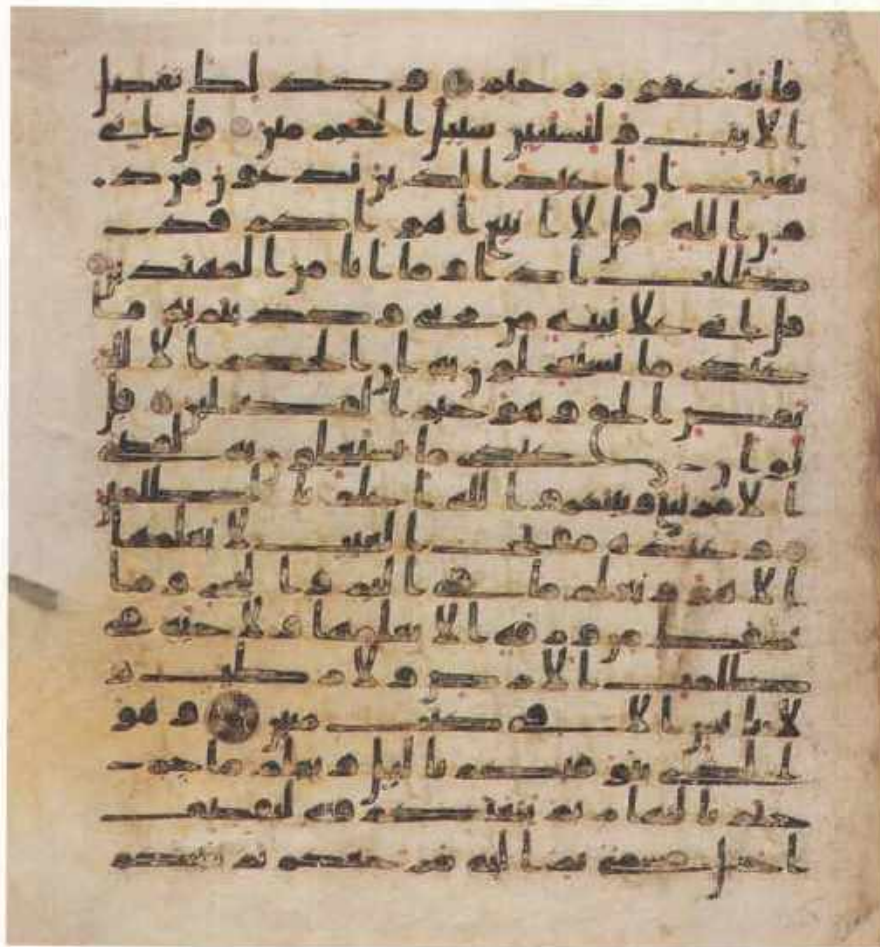 فانه غفور رحيم وكذلك نفصل
الايت ولتستبين سبيل المجرمين قل اني
نهيت ان اعبد الذين تدعون من د
ون الله قل لا اتبع اهواكم قد
ضللت اذا وما انا من المهتدين
قل اني على بينه من ربي وكذبتم به ما
عندي ما تستعجلون به ان الحكم الا لله
يقص الحق وهو خير الفصلين قل
لو ان عندي ما تستعجلون به لقضي
الامر بيني وبينكم والله اعلم بالظلمين
وعنده مفتح الغيب لا يعلمها
الا هو ويعلم ما في البر والبحر وما
تسقط من ورقه الا يعلمها ولا حبه في
ظلمت الارض ولا رطب و
لا يابس الا في كتب مبين وهو
الذي يتوفيكم باليل ويعلم ما جر
حتم بالنهار ثم يبعثكم فيه ليقضى
اجل مسمى ثم اليه مرجعكم ثم ينبيكم